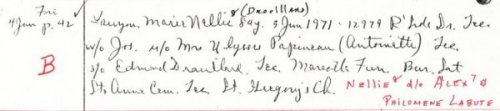 Fri (Drouillard)
4 Jun p. 42 ✓ Lauzon, Marie Nellie Fay. 3 Jun 1971 - 12979 R'side Dr. Tec.
w/o Jos. m/o Mrs Ulysse Papineau (Antoinette) Tec.
B s/o Edmond Drouillard, Tec. Marcotte Fun. Bur. Sat
St. Anne Cem. Tec St. Gregory's Ch. NELLIE d/o ALEX &
PHILOMENE LABUTE